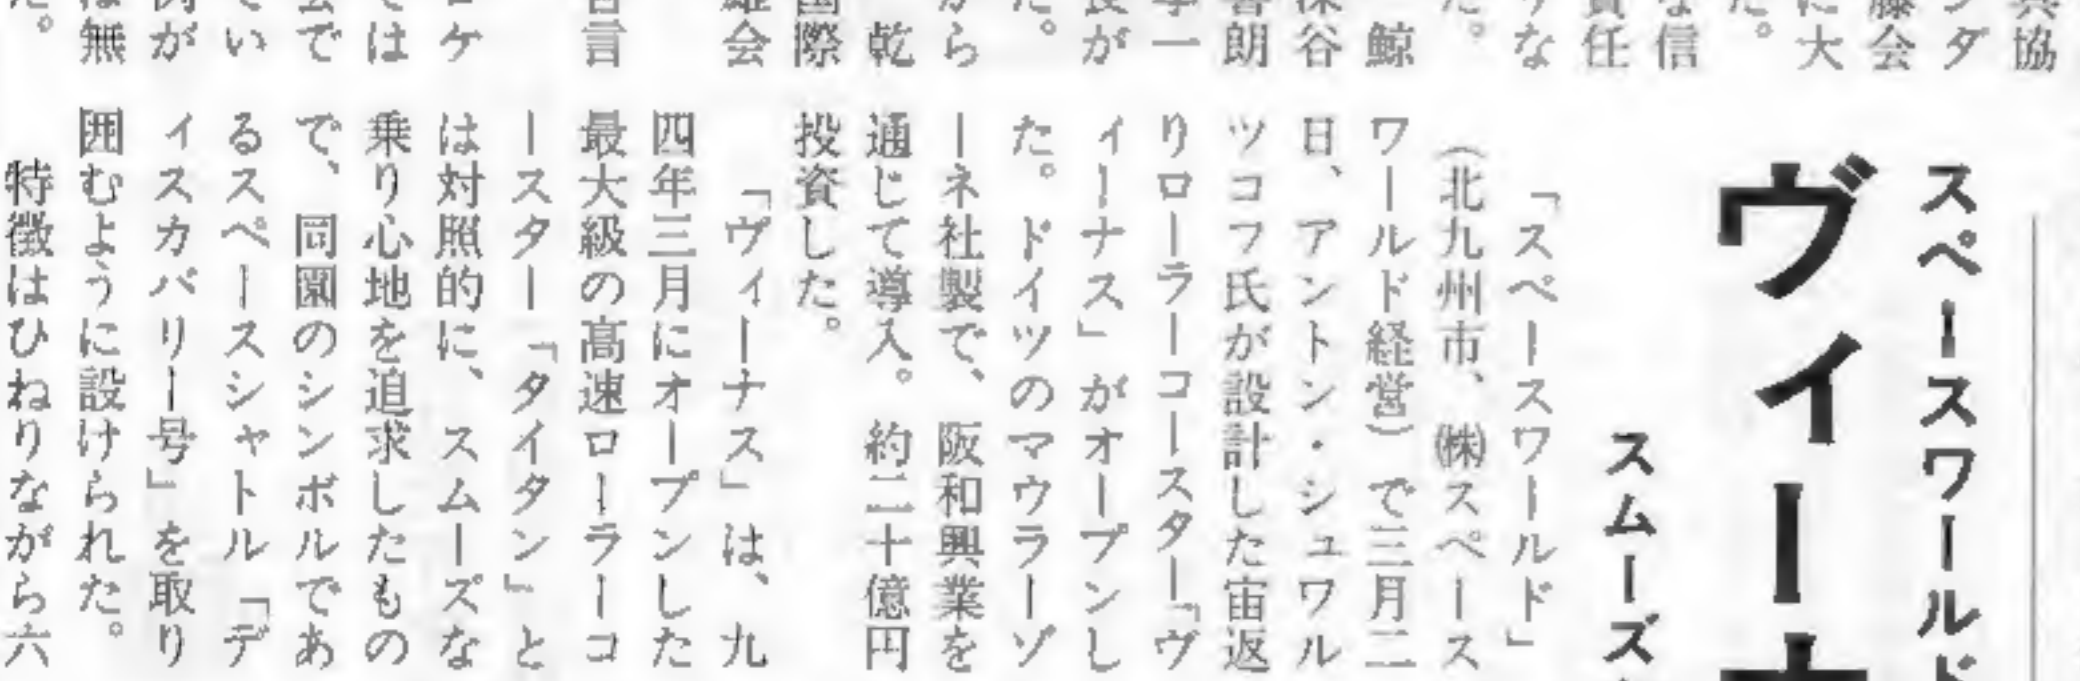 共協
ンダ
藤会
に大
た。
な信
責任
りな
た。
鯨
深谷
喜朗
孝一
長が
た。
から
乾
国際
雄会
言
ロケ
では
会で
てい
例が
は無
た。
スペースワールド
ヴィーナ
スムーズ
「スペースワールド」
(北九州市、㈱スペース
ワールド経営)で三月二
日、アントン・シュワル
ツコフ氏が設計した宙返
りローラーコースター「ヴ
ィーナス」がオープンし
た。ドイツのマウラーゾ
ーネ社製で、阪和興業を
通じて導入。約二十億円
投資した。
「ヴィーナス」は、九
四年三月にオープンした
最大級の高速ローラーコ
ースター「タイタン」と
は対照的に、スムーズな
乗り心地を追求したもの
で、同園のシンボルであ
るスペースシャトル「デ
ィスカバリー号」を取り
囲むように設けられた。
特徴はひねりながら六